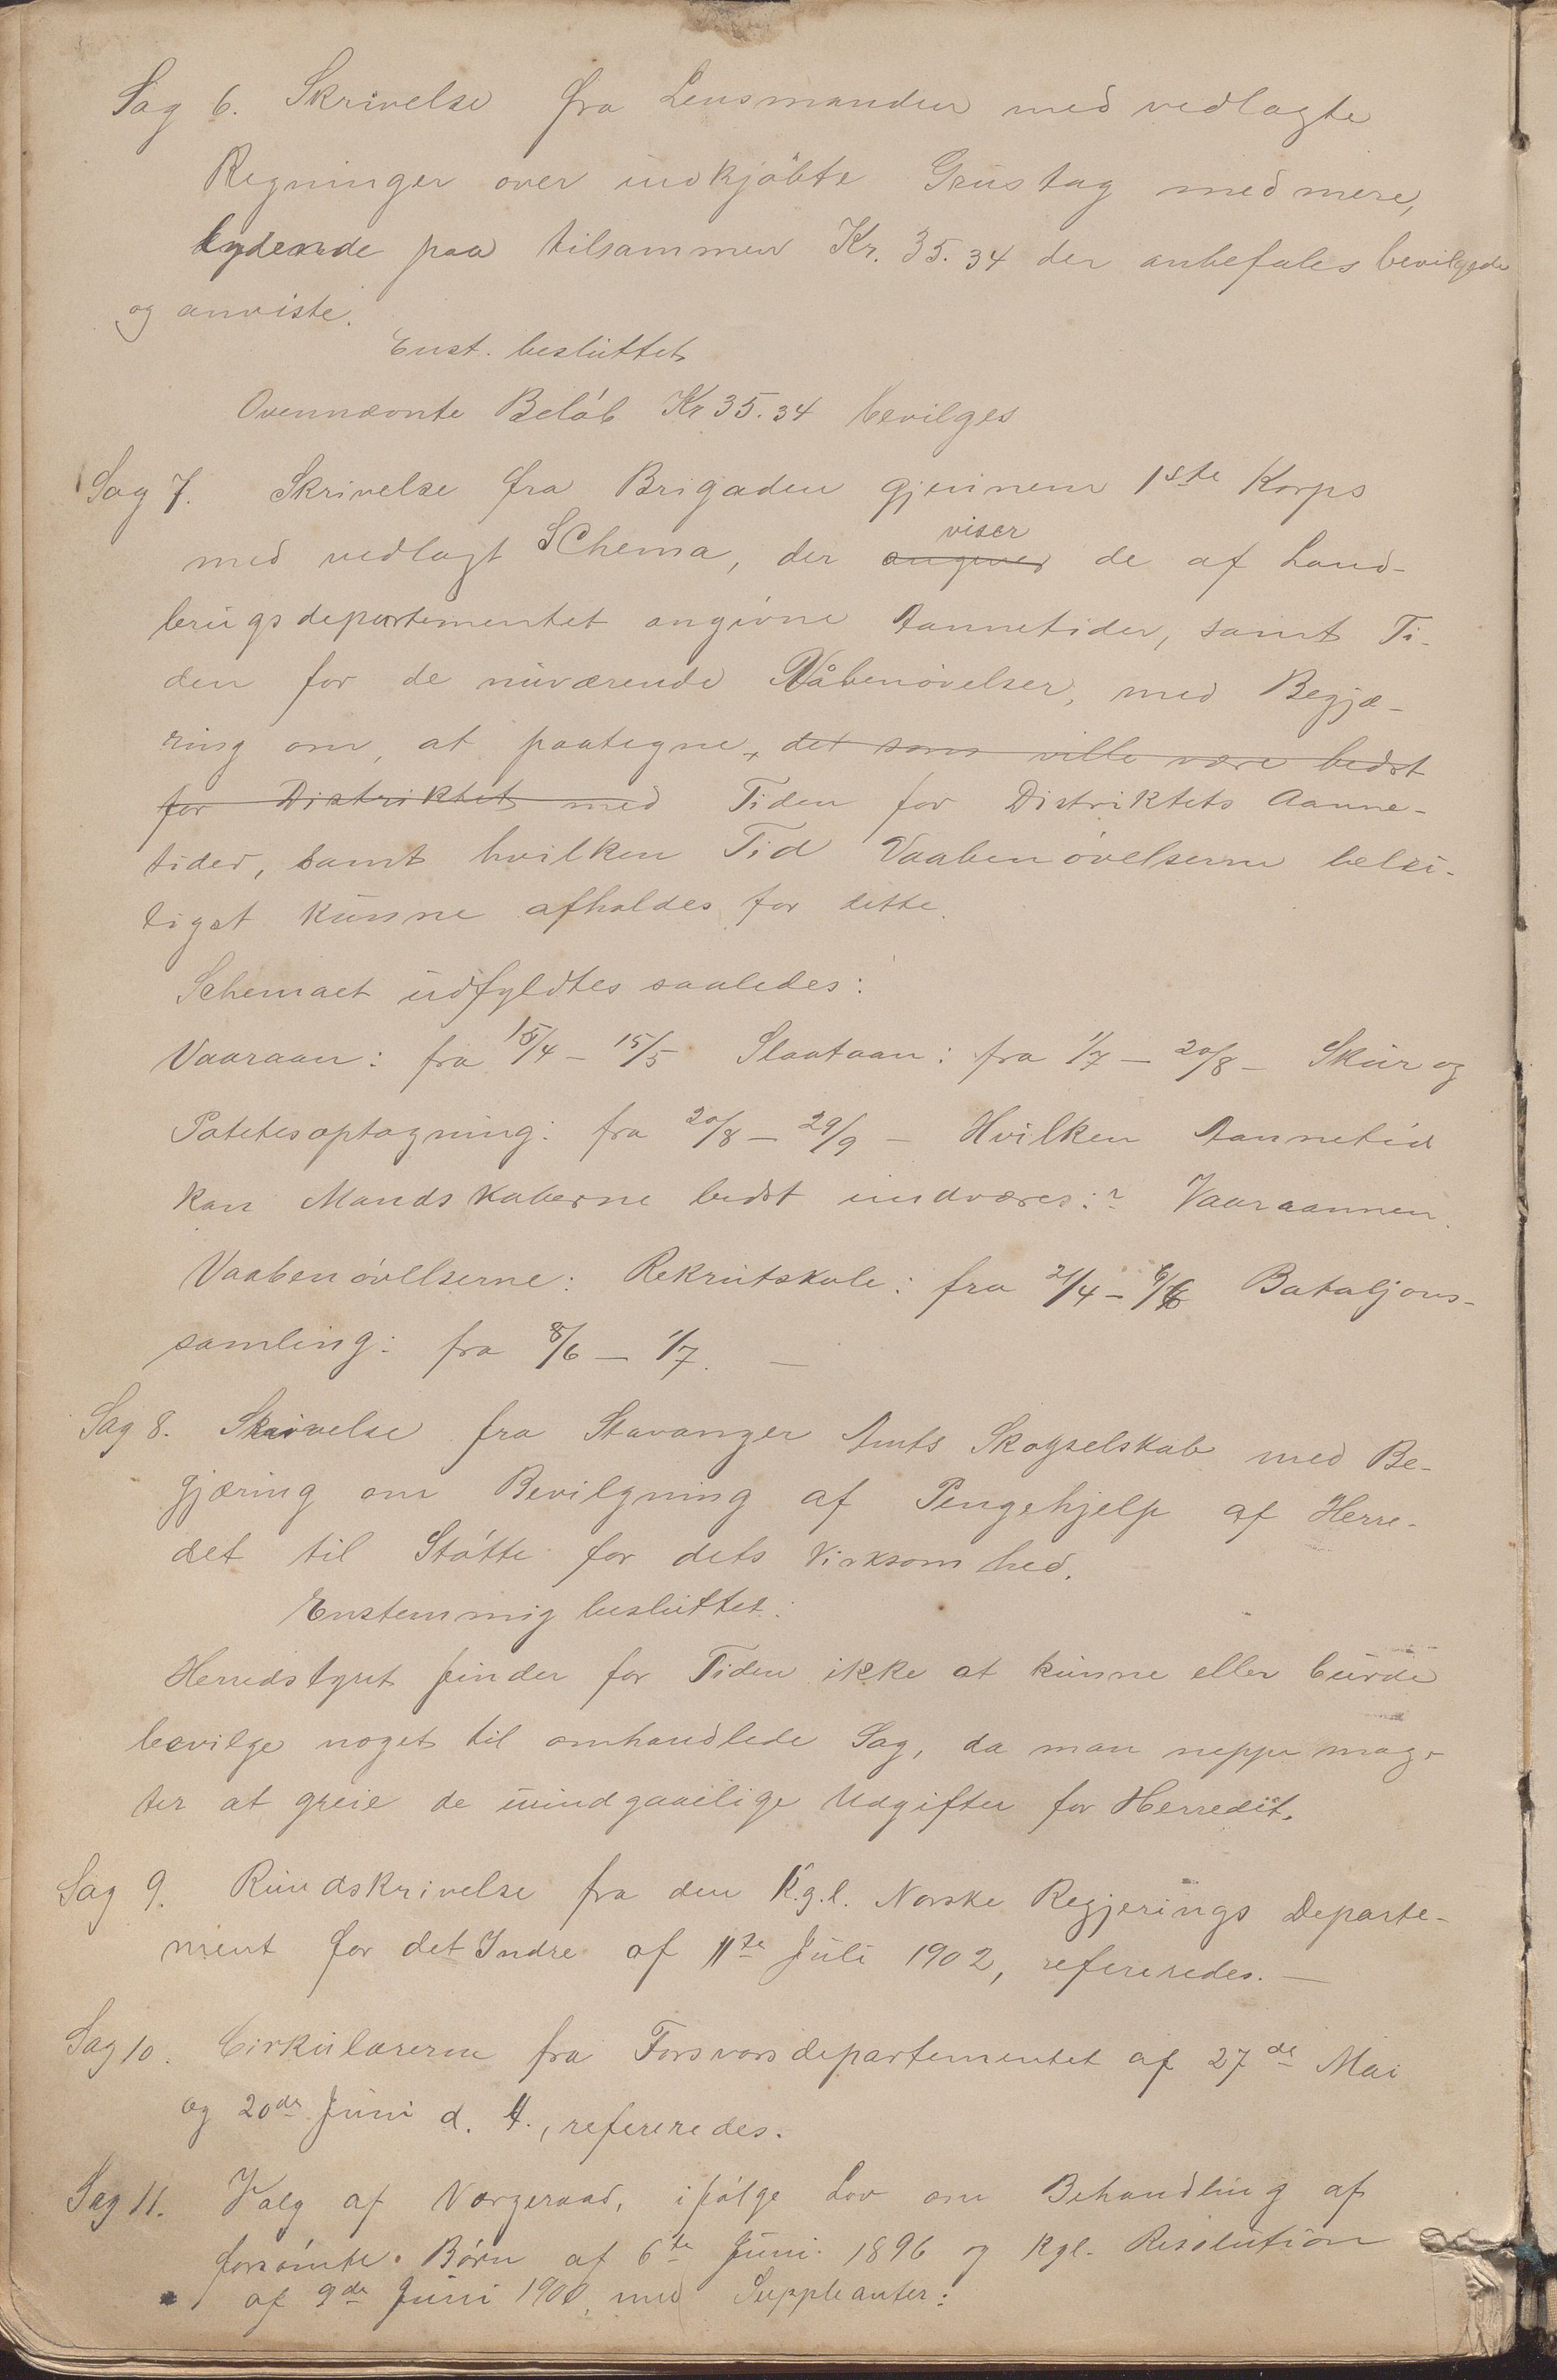 Sag 6. Skrivelse fra Lensmanden med vedlagte
Regninger over indkjöbte Grustag med mere,
lydende paa tilsammen Kr. 35.34 der anbefales bevilgede
og anviste.
Enst. besluttet
Ovennævnte Beløb Kr 35.34 bevilges
Sag 7. Skrivelse fra Brigaden gjennem 1ste Korps
viser
med vedlagt SChema, der angiver de af Land-
brugsdepartementet angivne Aannetider, samt Ti-
den for de nuværende Våbenøvelser, med Begjæ-
ring om, at paategne, det som ville være bedst
for Distriktet med Tiden for Distriktets Aanne-
tider, samt hvilken Tid Vaabenøvelserne belei-
ligst kunne afholdes for dette.
Schemaet udfyldtes saaledes:
Vaaraan: fra 15/4 – 15/5 Slaataan: fra 1/7 – 20/8 – Skur og
Potetesoptagning: fra 20/8 – 29/9 – Hvilken Aannetid
kan Mandskaberne bedst undværes:? Vaaraannen.
Vaabenøvelserne: Rekrutskole: fra 21/4 – 6/6 Bataljons-
samling: fra 8/6 – 1/7. —
Sag 8. Skrivelse fra Stavanger Amts Skogselskab med Be-
gjæring om Bevilgning af Pengehjelp af Herre-
det til Støtte for dets Virksomhed.
Enstemmig besluttet:
Herredstyret finder for Tiden ikke at kunne eller burde
bevilge noget til omhandlede Sag, da man neppe mag-
ter at greie de uundgaaelige Udgifter for Herredet.
Sag 9. Rundskrivelse fra den K.g.l. Norske Regjerings Departe-
ment for det Indre af 11te Juli 1902, refereredes. —
Sag 10. Cirkulærerne fra Forsvarsdepartementet af 27de Mai
og 20de Juni d. A., refereredes.
Sag 11. Valg af Værgeraad, ifølge Lov om Behandling af
forsømte Børn af 6te Juni 1896 og Kgl. Resolution
af 9de Juni 1900, med Suppleanter: